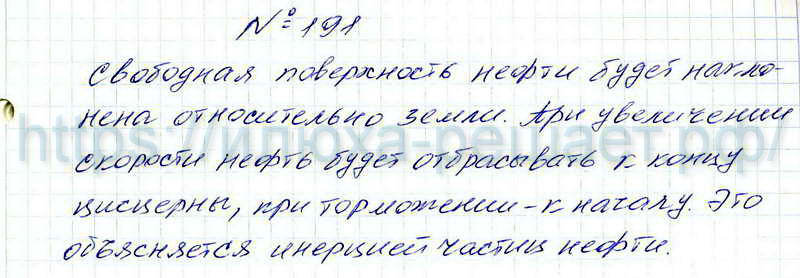 № 191
Свободная поверхность нефти будет накло-
нена относительно земли. При увеличении
скорости нефть будет отбрасывать к концу
цисцерны, при торможении - к началу. Это
объясняется инерцией частиц нефти.